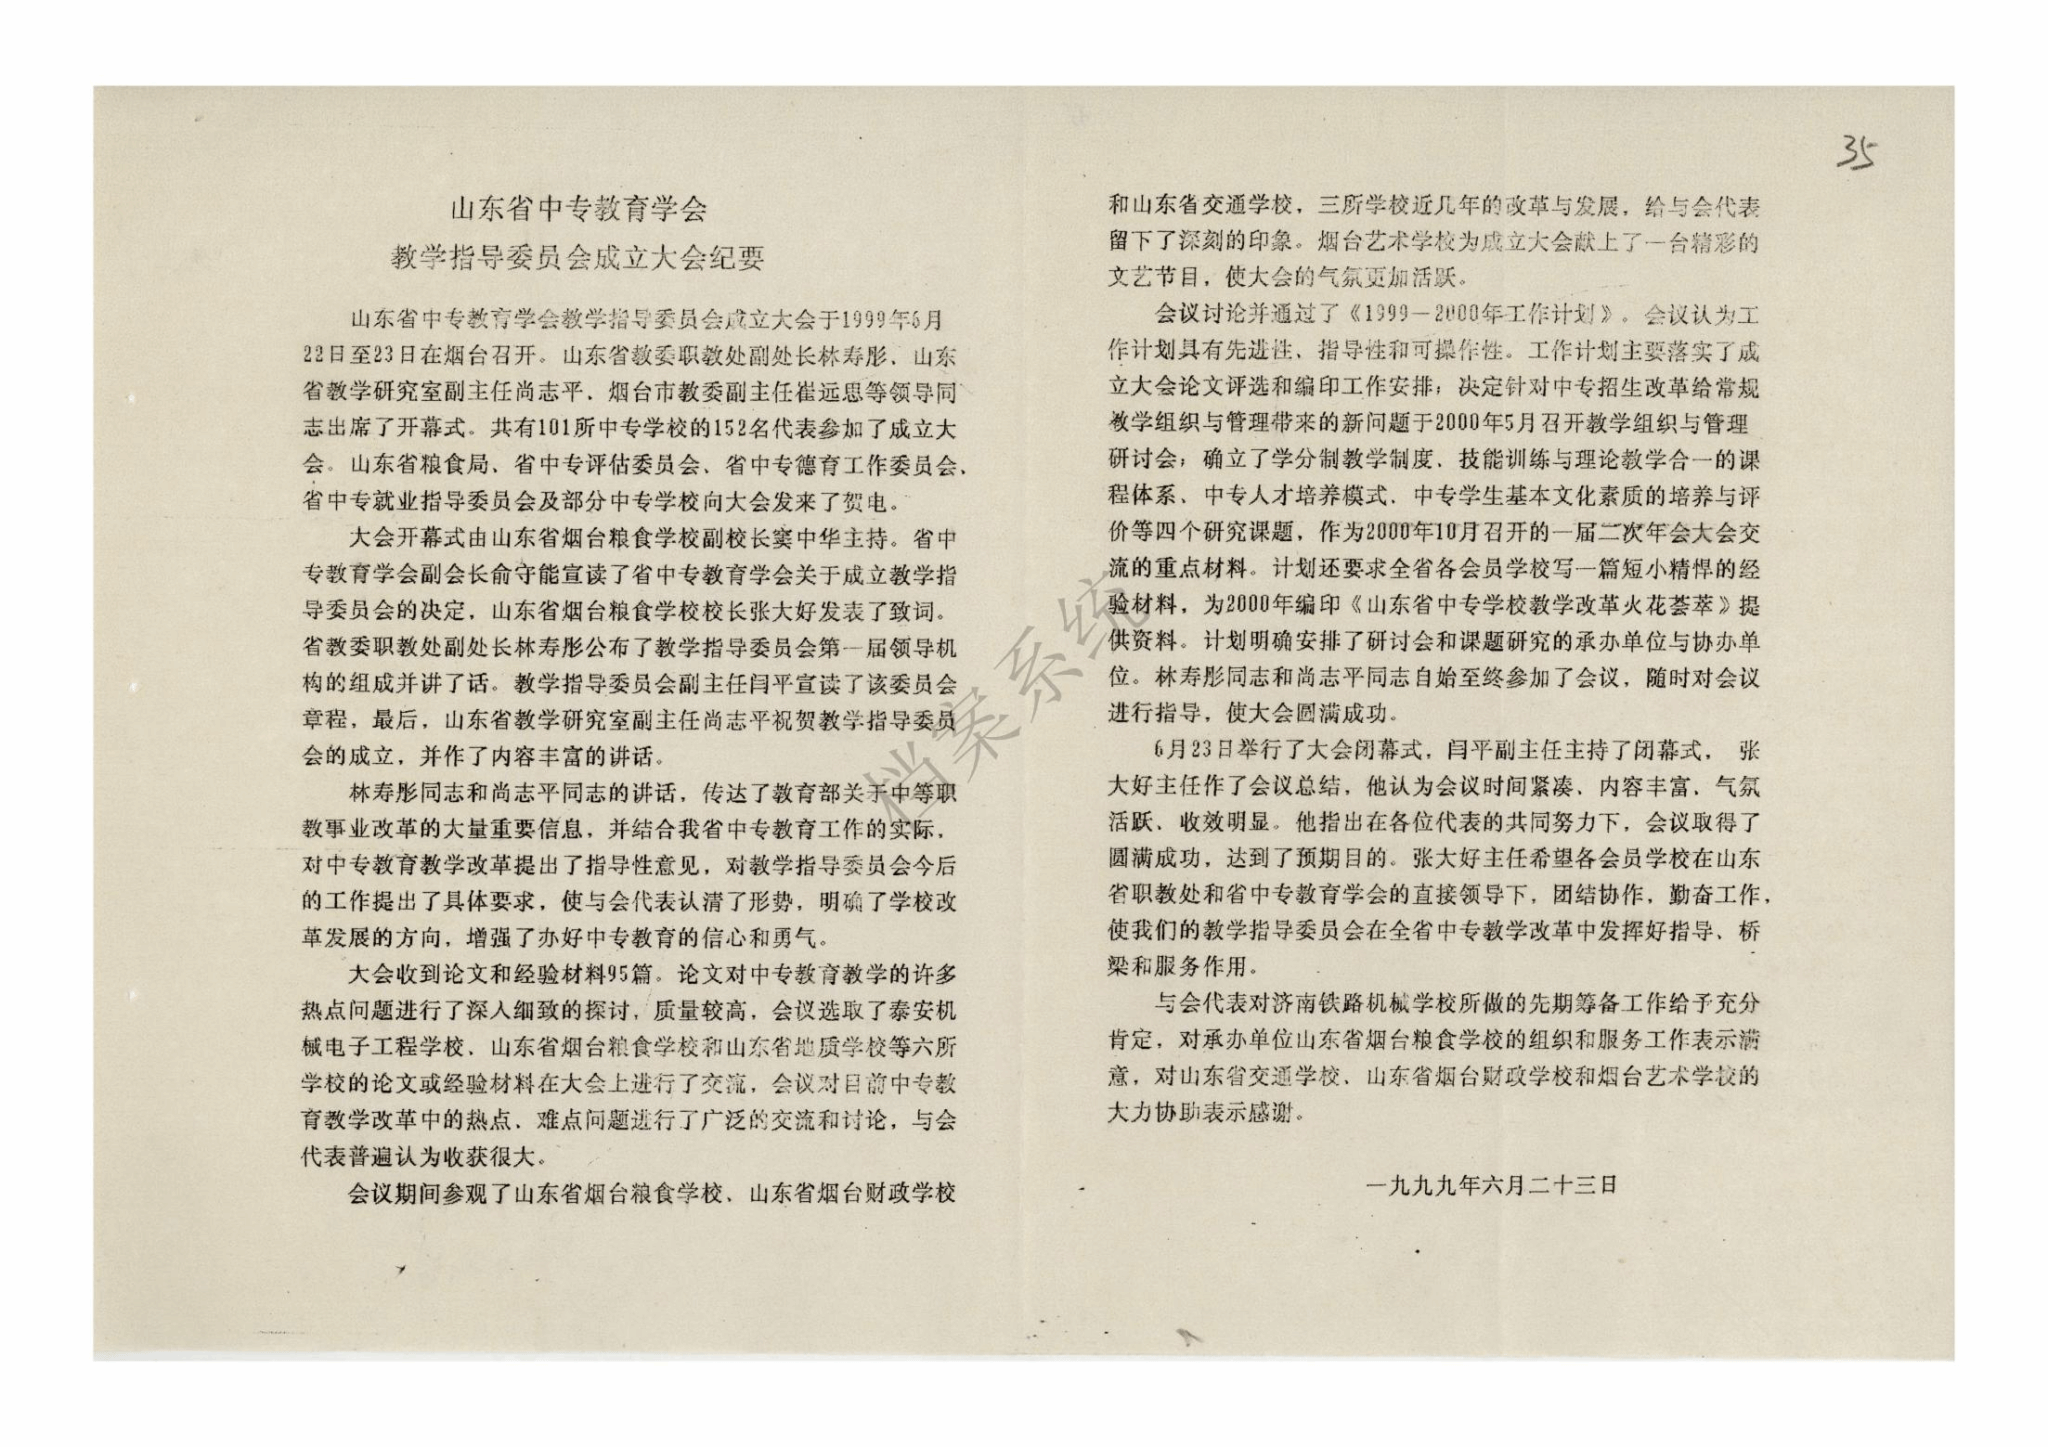 山东省中专教育学会
教学指导委员会成立大会纪要
山东省中专教育学会教学指导委员会成立大会于1999年6月
22日至23日在烟台召开。山东省教委职教处副处长林寿彤、山东
省教学研究室副主任尚志平、烟台市教委副主任崔远思等领导同
志出席了开幕式。共有101所中专学校的152名代表参加了成立大
会。山东省粮食局、省中专评估委员会、省中专德育工作委员会、
省中专就业指导委员会及部分中专学校向大会发来了贺电。
大会开幕式由山东省烟台粮食学校副校长窦中华主持。省中
专教育学会副会长俞守能宣读了省中专教育学会关于成立教学指
导委员会的决定，山东省烟台粮食学校校长张大好发表了致词。
省教委职教处副处长林寿彤公布了教学指导委员会第一届领导机
构的组成并讲了话。教学指导委员会副主任闫平宣读了该委员会
章程，最后，山东省教学研究室副主任尚志平祝贺教学指导委员
会的成立，并作了内容丰富的讲话。
林寿彤同志和尚志平同志的讲话，传达了教育部关于中等职
教事业改革的大量重要信息，并结合我省中专教育工作的实际，
对中专教育教学改革提出了指导性意见，对教学指导委员会今后
的工作提出了具体要求，使与会代表认清了形势，明确了学校改
革发展的方向，增强了办好中专教育的信心和勇气。
大会收到论文和经验材料95篇。论文对中专教育教学的许多
热点问题进行了深入细致的探讨，质量较高，会议选取了泰安机
械电子工程学校、山东省烟台粮食学校和山东省地质学校等六所
学校的论文或经验材料在大会上进行了交流，会议对目前中专教
育教学改革中的热点、难点问题进行了广泛的交流和讨论，与会
代表普遍认为收获很大。
会议期间参观了山东省烟台粮食学校、山东省烟台财政学校
35
和山东省交通学校，三所学校近几年的改革与发展，给与会代表
留下了深刻的印象。烟台艺术学校为成立大会献上了一台精彩的
文艺节目，使大会的气氛更加活跃。
会议讨论并通过了《1999－2000年工作计划》。会议认为工
作计划具有先进性、指导性和可操作性。工作计划主要落实了成
立大会论文评选和编印工作安排；决定针对中专招生改革给常规
教学组织与管理带来的新问题于2000年5月召开教学组织与管理
研讨会；确立了学分制教学制度、技能训练与理论教学合一的课
程体系、中专人才培养模式、中专学生基本文化素质的培养与评
价等四个研究课题，作为2000年10月召开的一届二次年会大会交
流的重点材料。计划还要求全省各会员学校写一篇短小精悍的经
验材料，为2000年编印《山东省中专学校教学改革火花荟萃》提
供资料。计划明确安排了研讨会和课题研究的承办单位与协办单
位。林寿彤同志和尚志平同志自始至终参加了会议，随时对会议
进行指导，使大会圆满成功。
6月23日举行了大会闭幕式，闫平副主任主持了闭幕式， 张
大好主任作了会议总结，他认为会议时间紧凑、内容丰富、气氛
活跃、收效明显。他指出在各位代表的共同努力下，会议取得了
圆满成功，达到了预期目的。张大好主任希望各会员学校在山东
省职教处和省中专教育学会的直接领导下，团结协作，勤奋工作，
使我们的教学指导委员会在全省中专教学改革中发挥好指导、桥
梁和服务作用。
与会代表对济南铁路机械学校所做的先期筹备工作给予充分
肯定，对承办单位山东省烟台粮食学校的组织和服务工作表示满
意，对山东省交通学校、山东省烟台财政学校和烟台艺术学校的
大力协助表示感谢。
一九九九年六月二十三日
档案系统